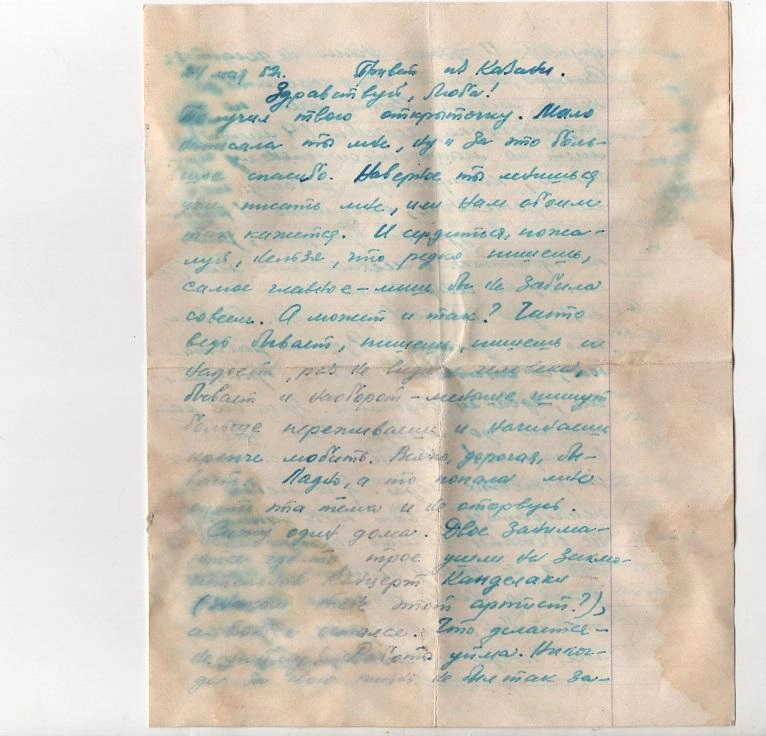 24 мая 52г. Привет из Казани.
Здравствуй, Люба!
Получил твою открыточку. Мало
написала ты мне, ну и за это боль-
шое спасибо. Наверное ты ленишься
уже писать мне, или нам обоим
так кажется. И сердиться, пожа-
луй, нельзя, что редко пишешь,
самое главное – лишь бы не забыла
совсем. А может и так? Часто
ведь бывает, пишешь, пишешь и
надоест, раз не видя человека,
бывает и наоборот – меньше пишут
больше переживаешь и начинаешь
крепче любить. Всяко, дорогая, бы-
вает. Ладно, а то попала мне
опять эта тема и не оторвусь.
Сижу один дома. Двое занима-
ются где-то трое ушли на заклю-
чительный концерт Канделаки
(знаком тебе этот артист?),
а я вот и остался. Что делается –
не пойму! Работы уйма. Никог-
да за свою жизнь не был так за-